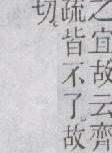 之宜故云齊
疏皆不了故
切